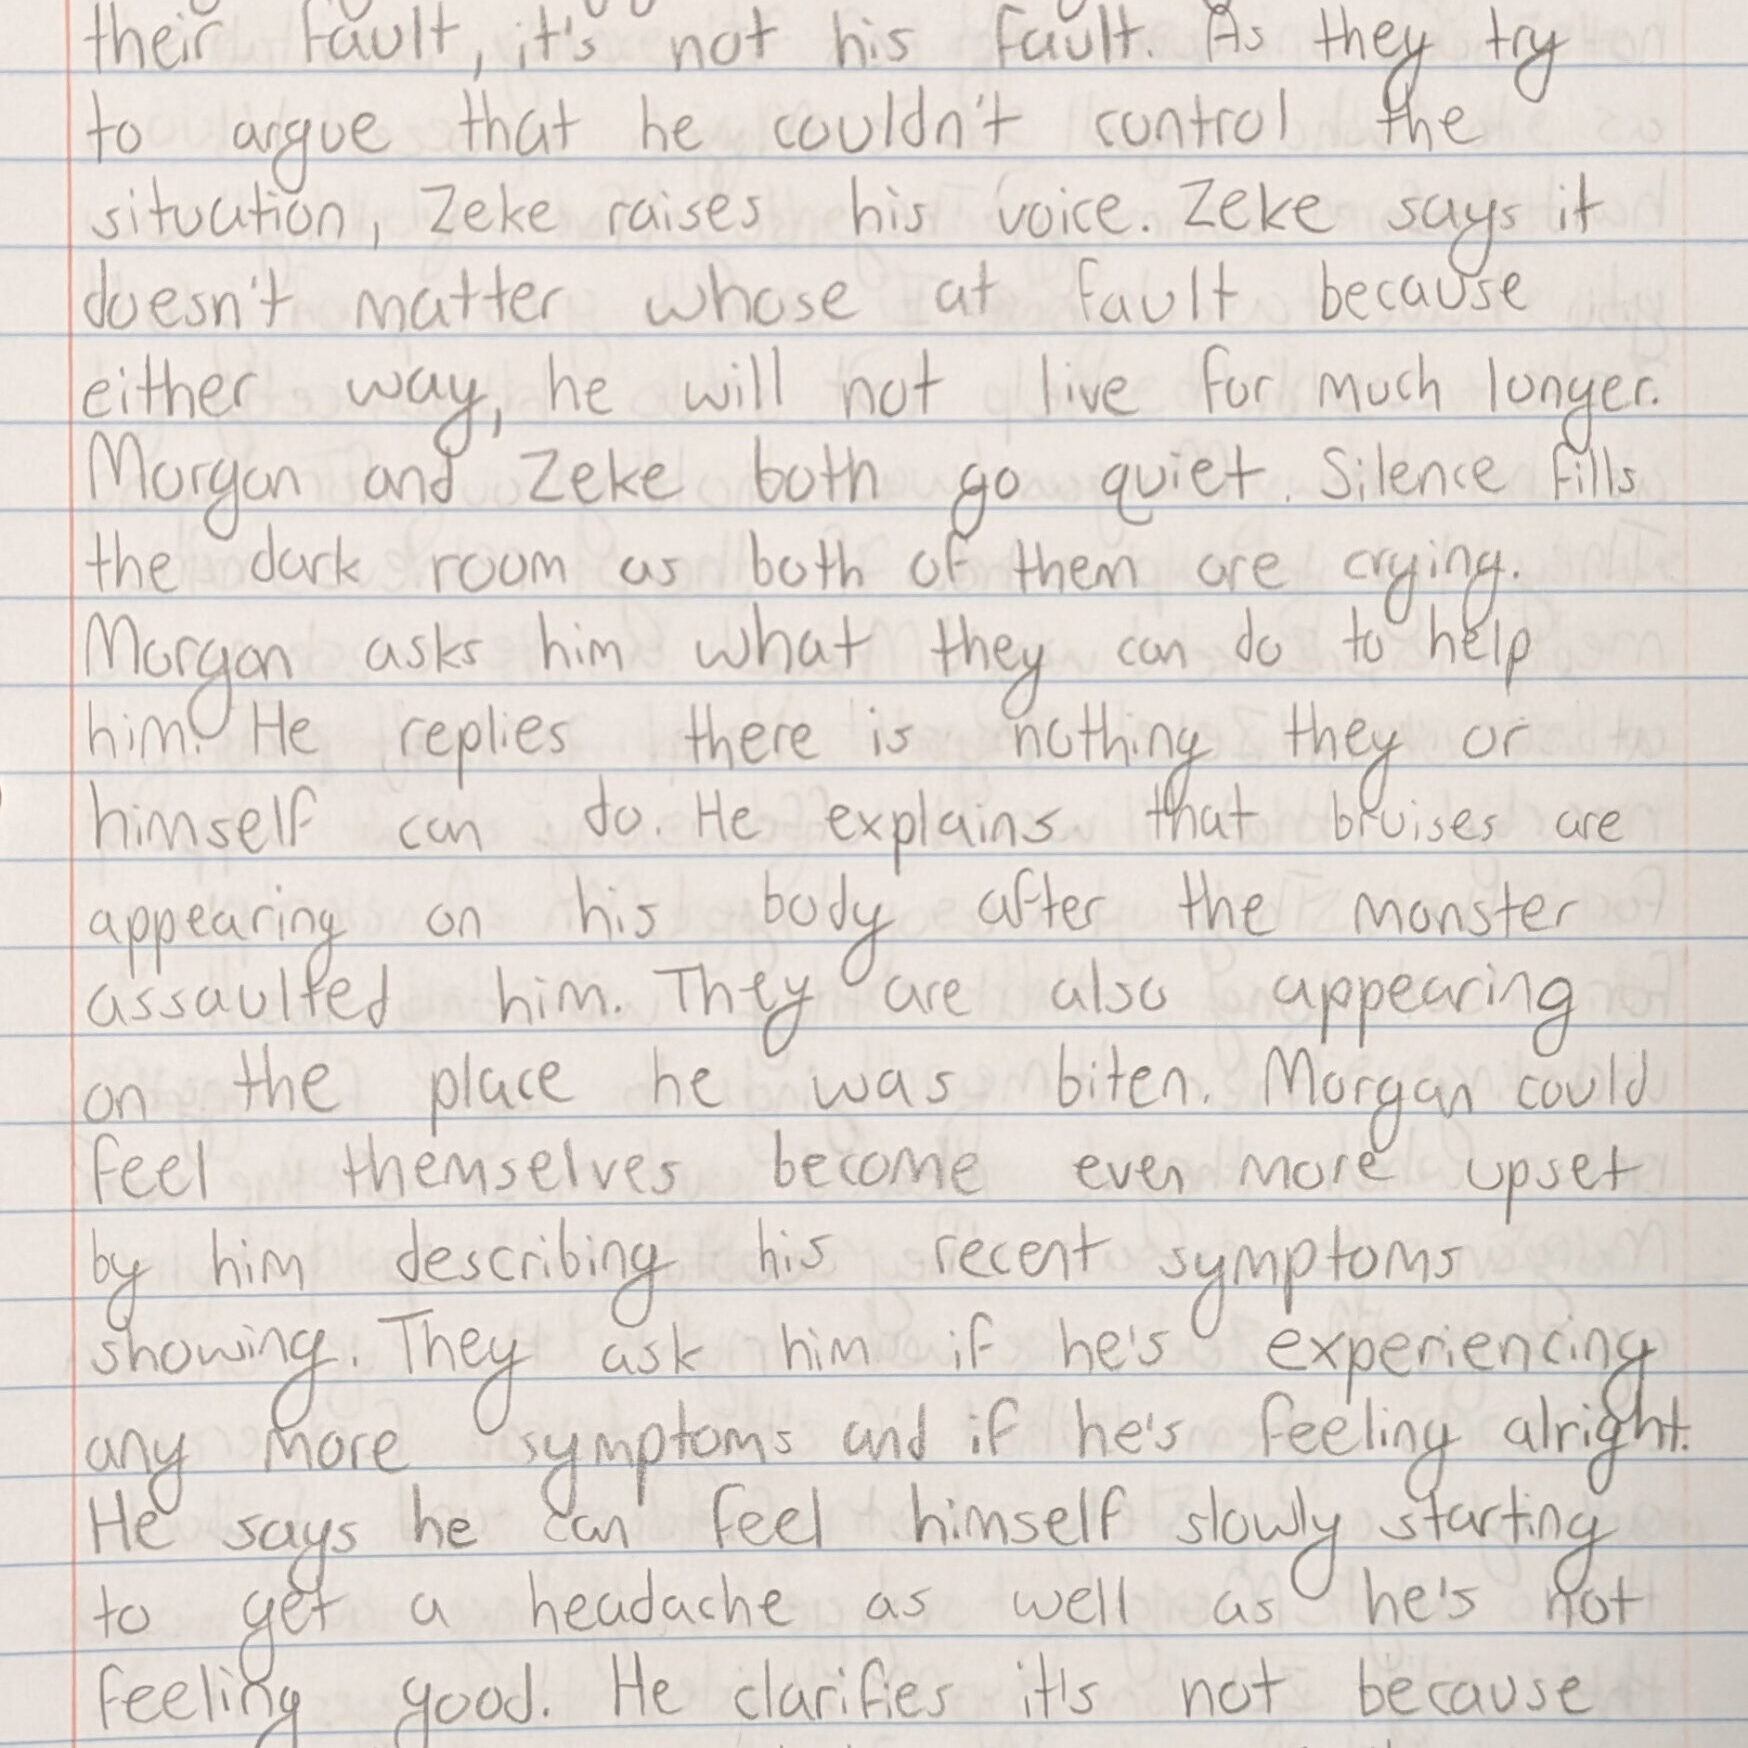 their fault, it's not his fault. As they try
to argue that he couldn't control the
situation, Zeke raises his voice. Zeke says it
doesn't matter whose at fault because
either way, he will not live for much longer.
Morgan and Zeke both go quiet. Silence fills
the dark room as both of them are crying.
Morgan asks him what they can do to help
him. He replies there is nothing they or
himself can do. He explains that bruises are
appearing on his body after the monster
assaulted him. They are also appearing
on the place he was biten. Morgan could
feel themselves become even more upset
by him describing his recent symptoms
showing. They ask him if he's experiencing
any more symptoms and if he's feeling alright.
He says he can feel himself slowly starting
to get a headache as well as he's not
feeling good. He clarifies it's not because